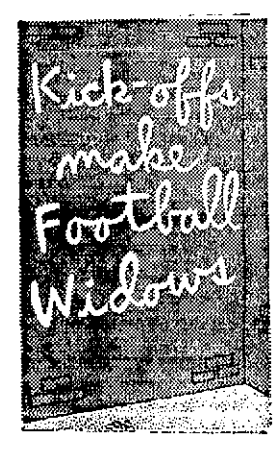 Kick-offs
make
Football
Widows